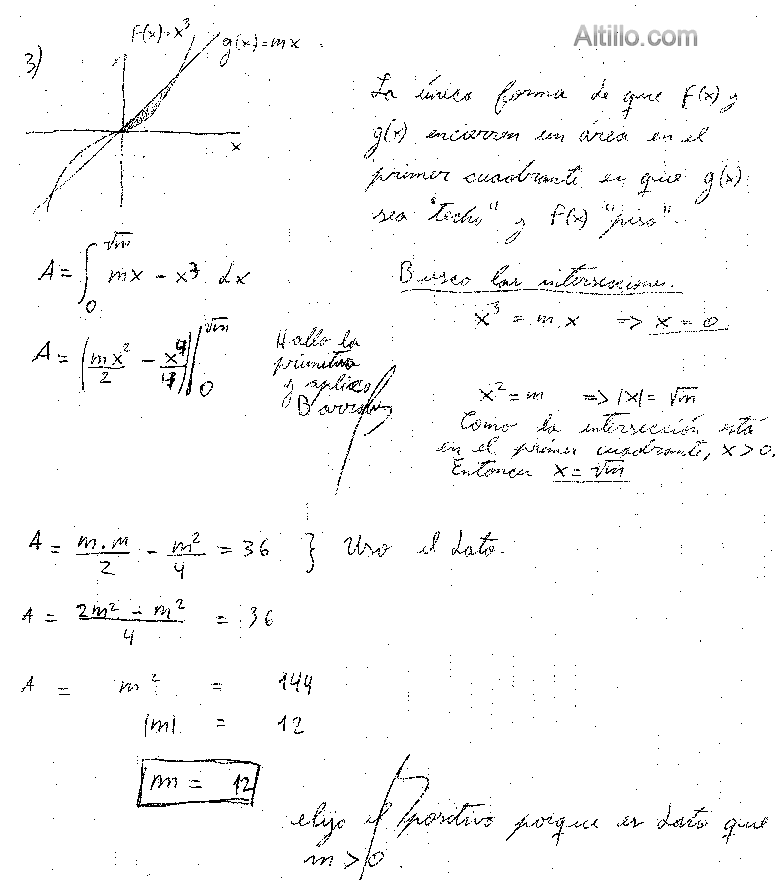 Altillo.com
3)
F(x)=x³
g(x)=mx
x
La única forma de que F(x) y
g(x) encierren un área en el
primer cuadrante es que g(x)
sea "techo" y F(x) "piso".
A = ∫₀^√m mx - x³ dx
A = (mx²/2 - x⁴/4)|₀^√m
Hallo la
primitiva
y aplico
Barrow
Busco las intersecciones.
x³ = m x => x = 0
x² = m => |x| = √m
Como la intersección está
en el primer cuadrante, x > 0.
Entonces x = √m
A = m.m/2 - m²/4 = 36 } Uso el dato.
A = 2m² - m²/4 = 36
A = m² = 144
|m| = 12
m = 12
elijo el positivo porque es dato que
m > 0.